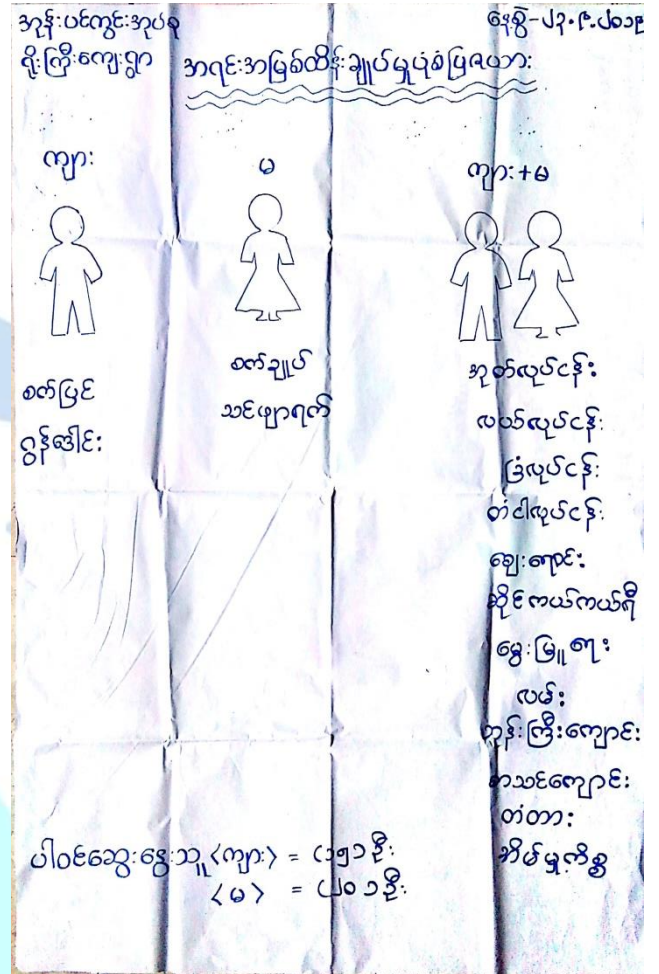 အုန်းပင်ကွင်းအုပ်စု
နေ့စွဲ-၂၃.၉.၂၀၁၉
ရိုးကြီးကျေးရွာ
အရင်းအမြစ်ထိန်းချုပ်မှုပုံစံပြဇယား
ကျား
မ
ကျား+မ
စက်ပြင်
ဂွန်ဒေါင်း
စက်ချုပ်
သင်ဖျာရက်
အုတ်လုပ်ငန်း
လယ်လုပ်ငန်း
ခြံလုပ်ငန်း
တံငါလုပ်ငန်း
ဈေးရောင်း
ဆိုင်ကယ်ကယ်ရီ
မွေးမြူရေး
လမ်း
ဘုန်းကြီးကျောင်း
စာသင်ကျောင်း
တံတား
အိမ်မှုကိစ္စ
ပါဝင်ဆွေးနွေးသူ <ကျား> = (၁၅) ဦး
<မ> = (၂၀) ဦး